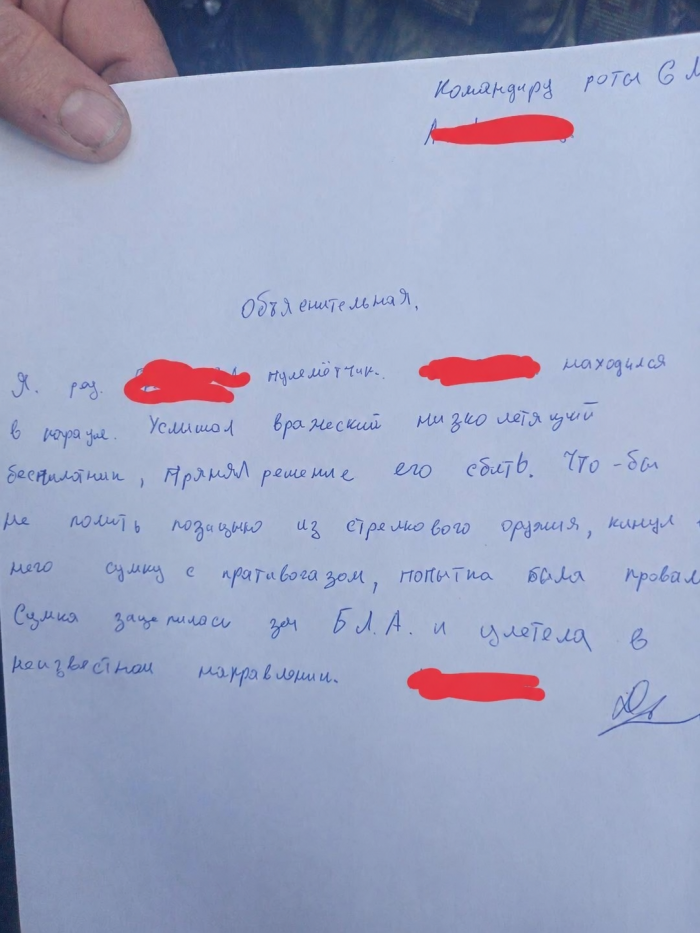 Командиру роты 6 М
А
Объяснительная.
Я. ряд. пулемётчик. находился
в карауле. Услишал вражеский низко летящий
беспилотник, Прянял решение его сбить. Что-бы
не полить позицыю из стрелкового оружия, кинул
него сумку с пративогазом, попытка была провал
Сумка зацепилась за Б.Л.А. и улетела в
неизвестном направлении.